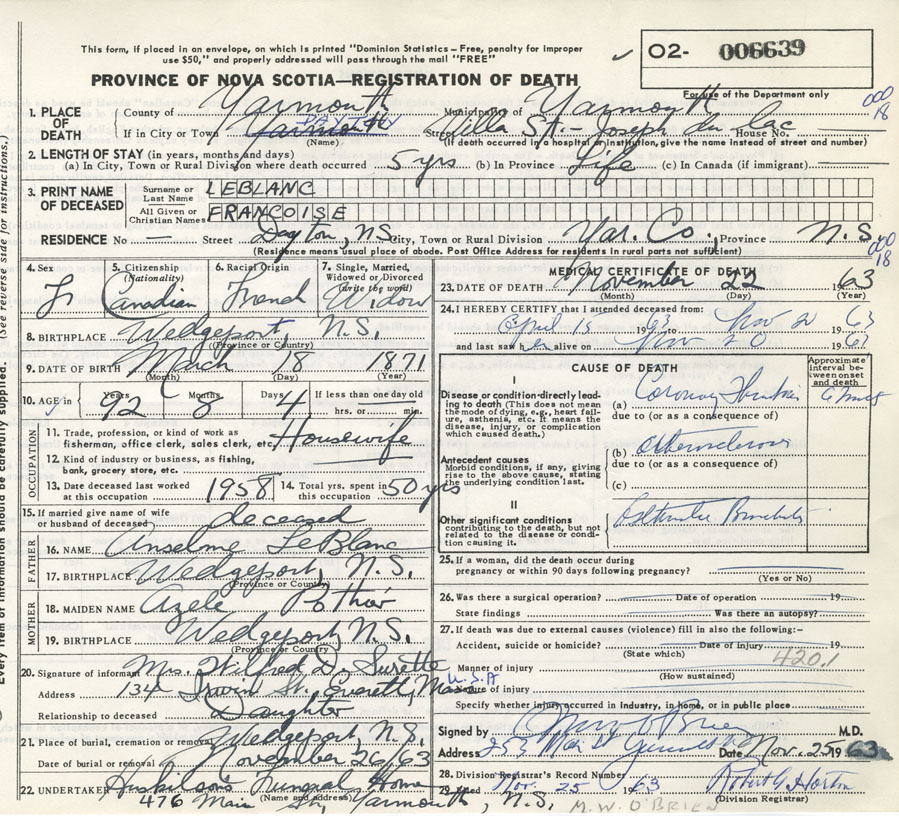 This form, if placed in an envelope, on which is printed "Dominion Statistics – Free, penalty for improper
use $50," and properly addressed will pass through the mail "FREE"
PROVINCE OF NOVA SCOTIA—REGISTRATION OF DEATH
O2- 006639
For use of the Department only
000
18
1. PLACE OF DEATH
County of Yarmouth Municipality of Yarmouth
If in City or Town Yarmouth DAYTON Street Villa St. - Joseph du lac House No.
(Name) (If death occurred in a hospital or institution, give the name instead of street and number)
2. LENGTH OF STAY (in years, months and days)
(a) In City, Town or Rural Division where death occurred 5 yrs (b) In Province Life (c) In Canada (if immigrant)
3. PRINT NAME OF DECEASED
Surname or Last Name LEBLANC
All Given or Christian Names FRANCOISE
RESIDENCE No — Street Dayton, NS City, Town or Rural Division Yar. Co. Province N.S
(Residence means usual place of abode. Post Office Address for residents in rural parts not sufficient)
000
18
4. Sex F
5. Citizenship (Nationality) Canadian
6. Racial Origin French
7. Single, Married, Widowed or Divorced (write the word) Widow
8. BIRTHPLACE Wedgeport, N.S.
(Province or Country)
9. DATE OF BIRTH March 18 1871
(Month) (Day) (Year)
10. AGE in Years 92 Months 8 Days 4 If less than one day old
hrs. or min.
OCCUPATION
11. Trade, profession, or kind of work as
fisherman, office clerk, sales clerk, etc. Housewife
12. Kind of industry or business, as fishing,
bank, grocery store, etc.
13. Date deceased last worked
at this occupation 1958
14. Total yrs. spent in
this occupation 50 yrs
15. If married give name of wife
or husband of deceased deceased
FATHER
16. NAME Anselme LeBlanc
17. BIRTHPLACE Wedgeport, N.S.
(Province or Country)
MOTHER
18. MAIDEN NAME Azele Pothier
19. BIRTHPLACE Wedgeport, N.S.
(Province or Country)
20. Signature of informant Mrs. Wilfred D. Surette
Address 134 Irwin St. Everett, Mass U.S.A
Relationship to deceased Daughter
21. Place of burial, cremation or removal Wedgeport, N.S.
Date of burial or removal November 26/63
22. UNDERTAKER Huskilson's Funeral Home
(Name and address)
476 Main St., Yarmouth, N.S.
MEDICAL CERTIFICATE OF DEATH
23. DATE OF DEATH November 22 1963
(Month) (Day) (Year)
24. I HEREBY CERTIFY that I attended deceased from:
April 15 1963 to Nov 20 1963
and last saw her alive on Nov 20 1963
CAUSE OF DEATH
Approximate interval between onset and death
I
Disease or condition directly leading to death (This does not mean
the mode of dying, e.g., heart failure, asthenia, etc. It means the
disease, injury, or complication which caused death.)
(a) Coronary
due to (or as a consequence of)
Antecedent causes
Morbid conditions, if any, giving rise to the above cause, stating
the underlying condition last.
(b)
due to (or as a consequence of)
(c)
II
Other significant conditions
contributing to the death, but not related to the disease or condition causing it.
25. If a woman, did the death occur during
pregnancy or within 90 days following pregnancy?
(Yes or No)
26. Was there a surgical operation? Date of operation 19
State findings Was there an autopsy?
27. If death was due to external causes (violence) fill in also the following:–
Accident, suicide or homicide? Date of injury 19
(State which)
420.1
Manner of injury
(How sustained)
Nature of injury
Specify whether injury occurred in Industry, in home, or in public place
Signed by O'Brien M.D.
Address 253 Main St Date Nov. 25 1963
28. Division Registrar's Record Number
29. Filed Nov. 25 1963 Robert G Horton
(Division Registrar)
M.W. O'BRIEN
(See reverse side for instructions.)
Every item of information should be carefully supplied.